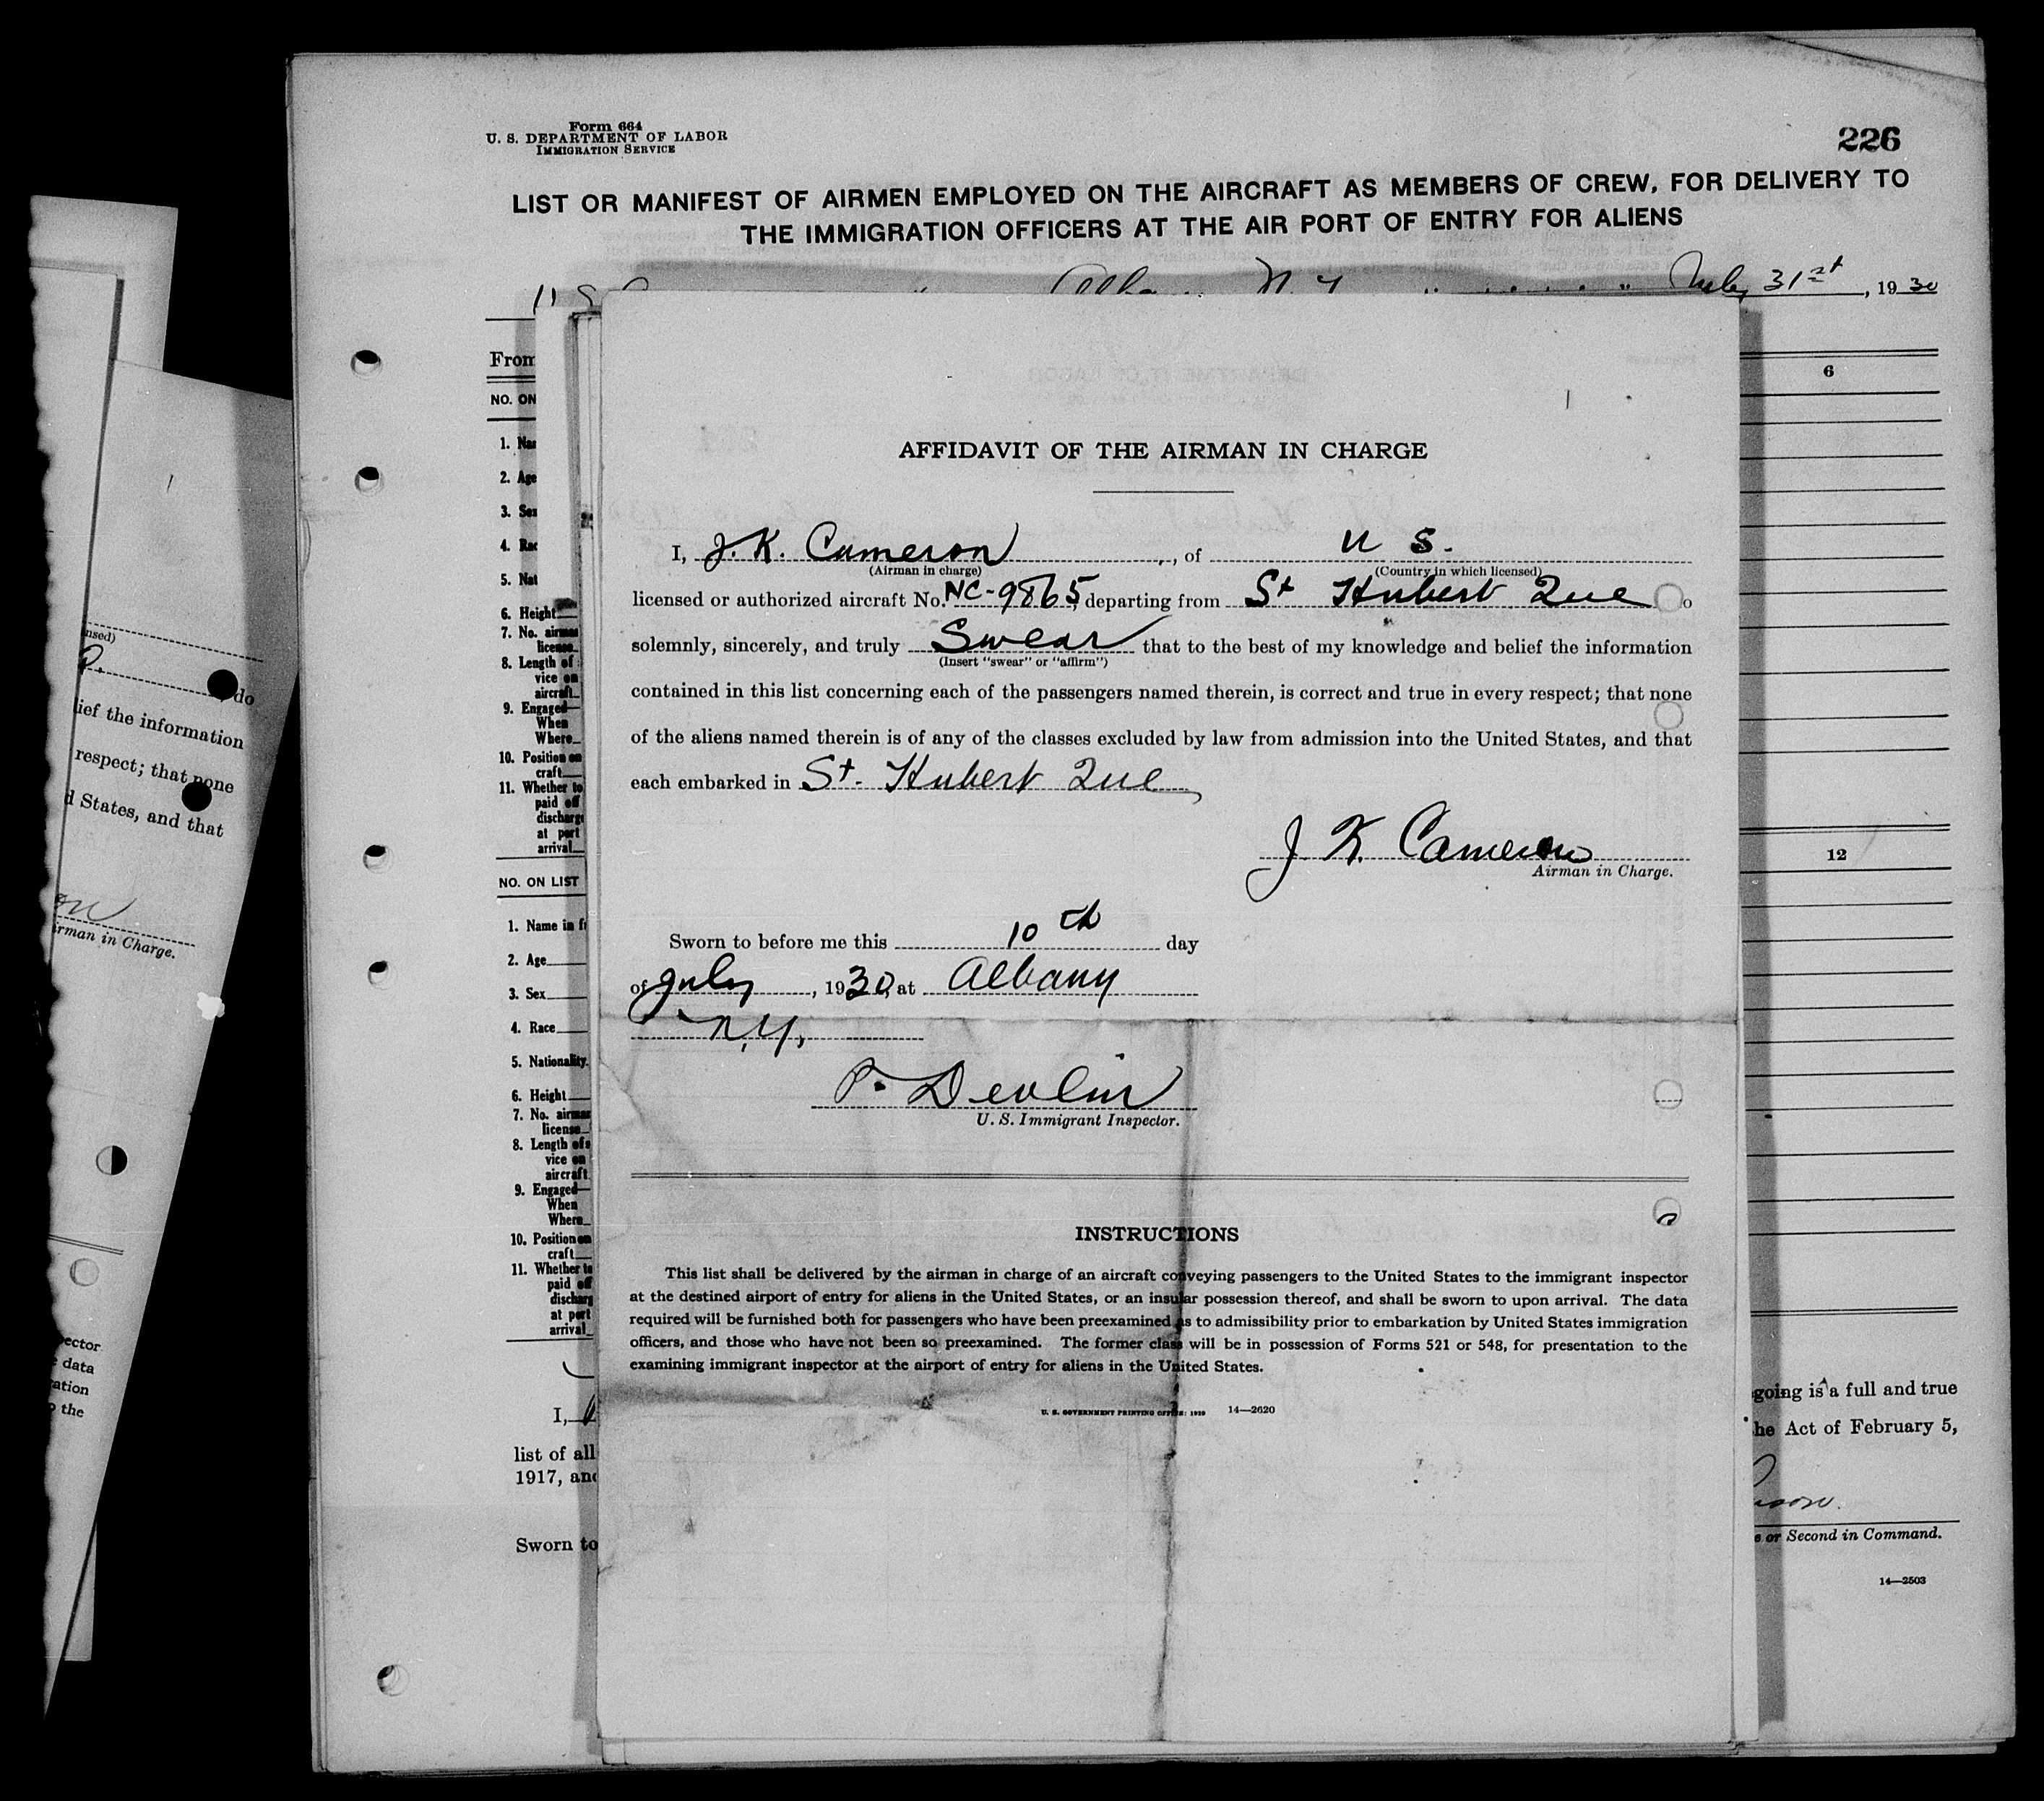 Form 664
U. S. DEPARTMENT OF LABOR
IMMIGRATION SERVICE
226
LIST OR MANIFEST OF AIRMEN EMPLOYED ON THE AIRCRAFT AS MEMBERS OF CREW, FOR DELIVERY TO
THE IMMIGRATION OFFICERS AT THE AIR PORT OF ENTRY FOR ALIENS
July 31st, 1930
From
NO. ON
1. Nam
2. Age
3. Sex
4. Rac
5. Nat
6. Height
7. No. airman
license
8. Length of
vice on
aircraft
9. Engaged—
When
Where
10. Position on
craft
11. Whether to
paid off
discharge
at port
arrival
6
12
NO. ON LIST
1. Name in f
2. Age
3. Sex
4. Race
5. Nationality
6. Height
7. No. airman
license
8. Length of s
vice on
aircraft
9. Engaged—
When
Where
10. Position on
craft
11. Whether to
paid off
discharg
at port
arrival
I,
list of all
1917, and
Sworn to
going is a full and true
he Act of February 5,
e or Second in Command.
14—2503
AFFIDAVIT OF THE AIRMAN IN CHARGE
I, J. K. Cameron, of U S.
(Airman in charge) (Country in which licensed)
licensed or authorized aircraft No. NC-9865, departing from St Hubert Que o
solemnly, sincerely, and truly Swear that to the best of my knowledge and belief the information
(Insert "swear" or "affirm")
contained in this list concerning each of the passengers named therein, is correct and true in every respect; that none
of the aliens named therein is of any of the classes excluded by law from admission into the United States, and that
each embarked in St. Hubert Que
J K. Cameron
Airman in Charge.
Sworn to before me this 10th day
of July, 1930, at Albany
N.Y.
P. Devlin
U. S. Immigrant Inspector.
INSTRUCTIONS
This list shall be delivered by the airman in charge of an aircraft conveying passengers to the United States to the immigrant inspector
at the destined airport of entry for aliens in the United States, or an insular possession thereof, and shall be sworn to upon arrival. The data
required will be furnished both for passengers who have been preexamined as to admissibility prior to embarkation by United States immigration
officers, and those who have not been so preexamined. The former class will be in possession of Forms 521 or 548, for presentation to the
examining immigrant inspector at the airport of entry for aliens in the United States.
U. S. GOVERNMENT PRINTING OFFICE: 1929 14—2620
nsed)
do
lief the information
respect; that none
d States, and that
irman in Charge.
pector
data
ration
o the